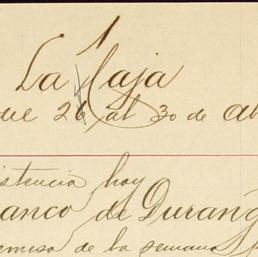 La Caja
del 26 al 30 de Ab
istencia hoy
anco de Durang
emesa de la semana